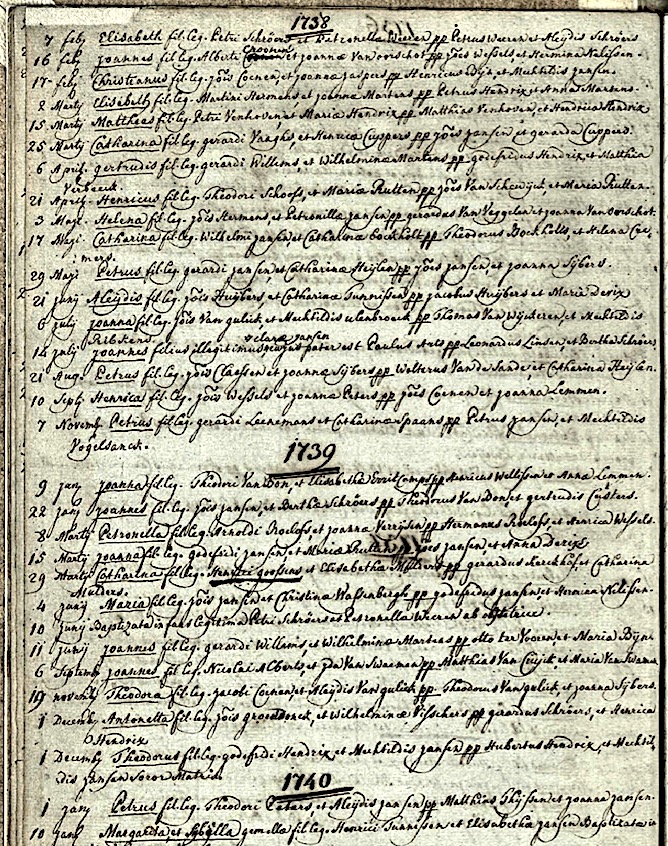 1738
7 feb Elisabeth fil: leg. Petri Schröers et Petronella Weeren pp Petrus Weeren et Aleydis Schröers
16 feb Joannes fil: leg. Alberti Croonen et Joannæ Van oorschot pp Jöes Wessels, et Hermina Nelissen.
17 feb Christianus fil: leg. Jöis Coenen, et Joannæ Jaspers pp Henricus et Mechtildis Jansen
2 Marty Elisabeth fil: leg. Martini Hermens, et Joannæ Martens pp Petrus Hendrix et Anna Martens.
15 Marty Mattheas fil: leg. Petri Venhoven, et Maria Hendrix pp Matthias Venhoven, et Hendrica Hendrix
25 Marty Catharina fil: leg. gerardi et Henrica Cuppers pp Jöes Jansen et gerarda Cuppers.
6 April. gertrudis fil: leg. gerardi Willems, et Wilhelminæ Martens pp godefridus Hendrix, et Matthia
Verbeeck.
21 April. Henricus fil: leg. Theodori Schoofs, et Mariæ Rutten pp Jöes Van et Maria Rutten.
3 Maji. Helena fil: leg. Jöis Hermens, et Petronilla Jansen pp gerardus Van Veggelen et Joanna Van oorschot.
17 Maji. Catharina fil: leg. Wilhelmi Jansen et Catharinæ bockholt pp Theodorus Bockholts, et Helena Cre,
mers.
29 Maji Petrus fil: leg. gerardi Jansen, et Catharinæ Heijlen pp Jöes Jansen, et Joanna Sijbers.
21 Junij Aleydis fil: leg. Jöis Huijbers, et Catharinæ Tunnissen pp Jacobus Huijbers et Maria Derix
6 Julij Joanna fil: leg. Jöis Van gulick, et Mechtildis ulenbroeck pp Thomas Van Wijckeren, et Mechtildis
Ribbkens.
velaræ Jansen
14 Julij Joannes filius illegitimus cujus pater est Paulus Arts pp Leonardus Linsen, et Bertha Schröers
21 Aug. Petrus fil: leg. Jöis Claessen et Joannæ Sijbers pp Wolterus Van de Sande, et Catharina Heijlen.
10 Septb Henrica fil: leg. Jöis Wessels et Joannæ Peters pp Jöes Coenen et Joanna Lemmen.
7 Novemb Petrus fil: leg. gerardi Loenemans et Catharinæ Spaans pp Petrus Jansen, et Mechtildis
Vogelsanck.
1739
9 Janij Joanna fil: leg. Theodori Van Bon, et Elisabethæ pp Henricus Wellissen et Anna Lemmen.
22 Janij Joannes fil: leg. Jöis Jansen, et Berthæ Schröers pp Theodorus Van Bon, et gertrudis Custers.
8 Marty Petronella fil: leg. Arnoldi Roelofs et Joannæ Verrijsen pp Hermanus Roelofs, et Henrica Wessels.
15 Marty Joanna fil: leg. godefridi Jansen, et Mariæ Rutten pp Jöes Jansen, et Anna Derix
29 Marty Catharina fil: leg. Henrici goossens et Elisabethæ Mulders pp gerardus Kerckhof, et Catharina
Mulders.
4 Junij Maria fil: leg. Jöis Jansen et Christina Wassenbergh pp godefridus Jansen et Hermina Nelissen.
10 Junij Baptizata infans legitima Petri Schröers et Petronella Weeren ab obstetrice.
11 Junij Joannes fil: leg. gerardi Willems, et Wilhelminæ Martens pp otto ter Vooren, et Maria Dijn.
6 Septemb Joannes fil: leg. Nicolai Alberts, et Ida Van Swaemen pp Matthias Van Cuijck et Maria Van Swamen
19 novemb Theodora fil: leg. Jacobi Coenen, et Aleydis Van gulick pp. Theodorus Van gulick, et Joanna Sijbers.
1 Decemb Antonetta fil: leg. Jöis et Wilhelminæ Visschers pp gerardus Schröers, et Henrica
Hendrix
1 Decemb Theodorus fil: leg. godefridi Hendrix, et Mechtildis Jansen pp Hubertus Hendrix, et Mechtil,
dis Jansen Soror Matris.
1740
1 Janij Petrus fil: leg. Theodori Peters, et Aleydis Jansen pp Matthias Thijssen et Joanna Jansen.
10 Janij Margarita, et Sybilla gemellæ fil: leg. Henrici Tunnissen et Elisabethæ Jansen Baptizatæ in